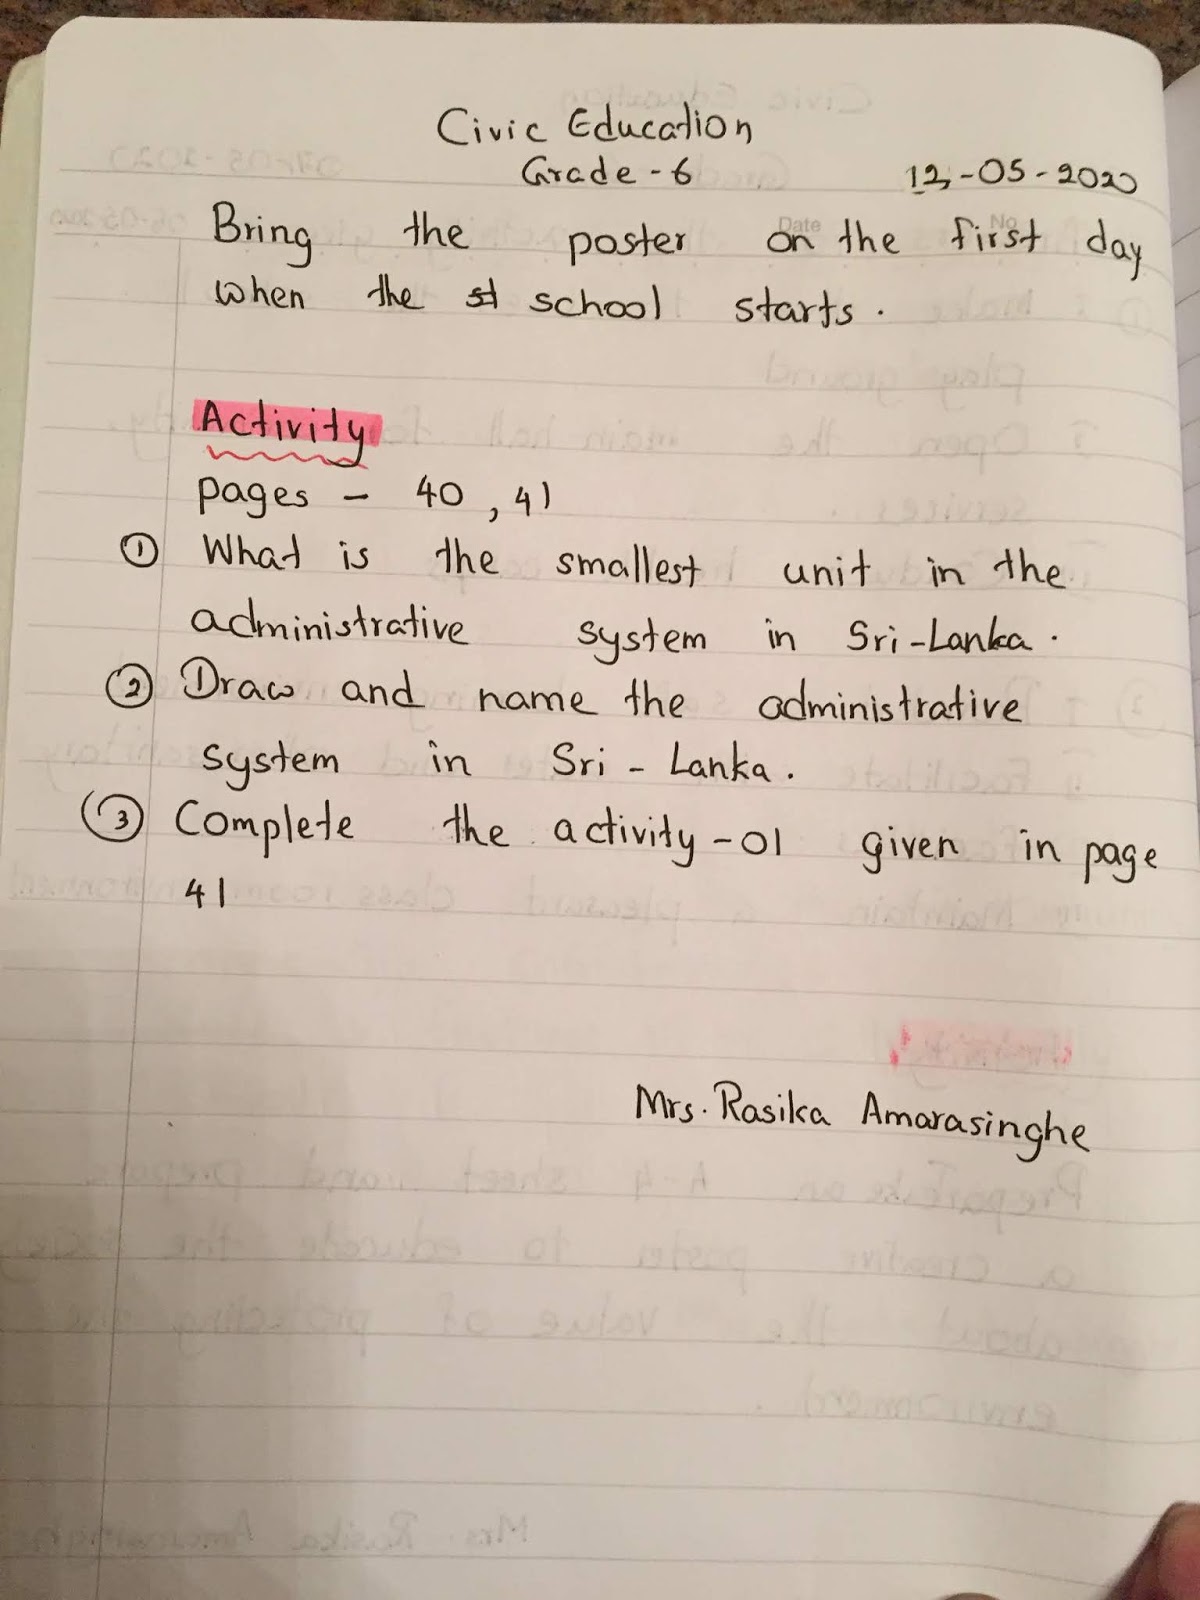 Civic Education
Grade - 6
12-05-2020
Date
No
Bring the poster on the first day
when the st school starts.
Activity
pages - 40, 41
① What is the smallest unit in the
administrative system in Sri-Lanka.
② Draw and name the administrative
system in Sri - Lanka.
③ Complete the activity-01 given in page
41
Mrs. Rasika Amarasinghe